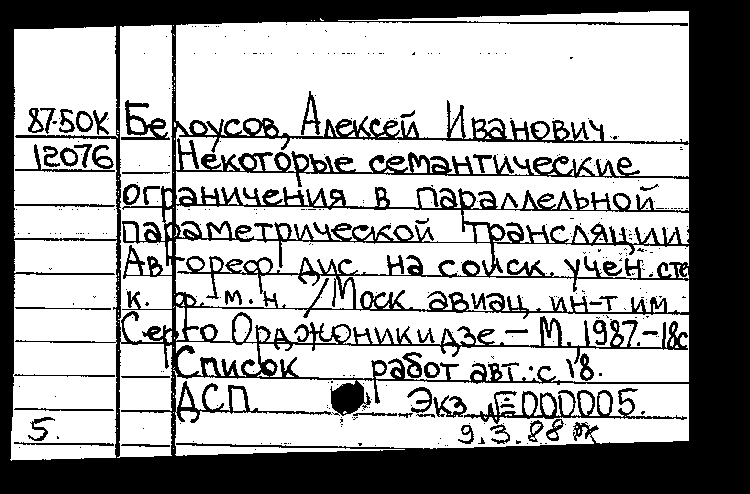 87-50К Белоусов, Алексей Иванович.
12076 Некоторые семантические
ограничения в параллельной
параметрической трансляции:
Автореф. дис. на соиск. учен. сте
к. ф.-м. н. /Моск. авиац. ин-т им.
Серго Орджоникидзе. – М., 1987. – 18с
Список работ авт.: с. 18.
ДСП. Экз. № 000005.
5. 9.3.88